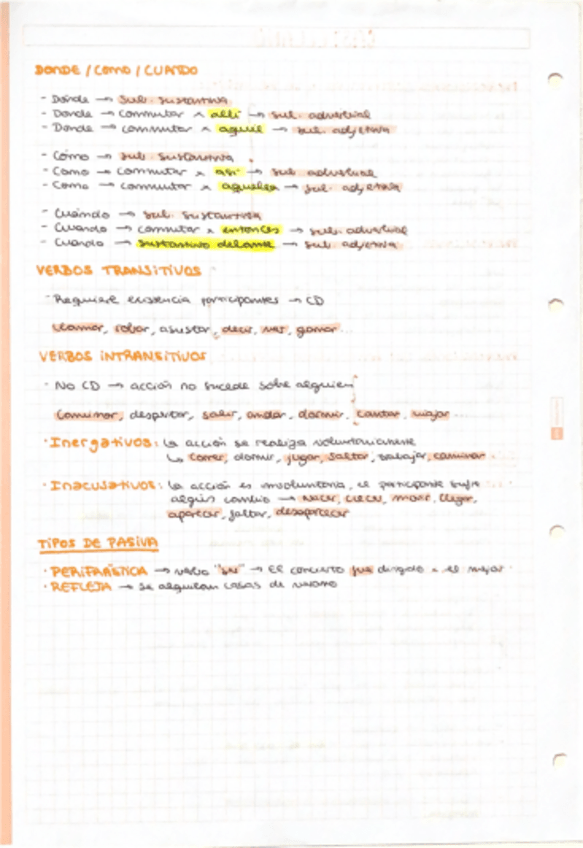 DONDE / COMO / CUANDO
- Dónde → sub. sustantiva
- Donde → commutar x allí → sub. adverbial
- Donde → commutar x aquel → sub. adjetiva
- Cómo → sub. sustantiva
- Como → commutar x así → sub. adverbial
- Como → commutar x aquella → sub. adjetiva
- Cuándo → sub. sustantiva
- Cuando → commutar x entonces → sub. adverbial
- Cuando → sustantivo delante → sub. adjetiva
VERBOS TRANSITIVOS
- Requiere existencia participantes → CD
llamar, robar, asustar, decir, ver, ganar
VERBOS INTRANSITIVOS
- No CD → acción no sucede sobre alguien
Caminar, despertar, salir, andar, dormir, cantar, viajar
· Inergativos: La acción se realiza voluntariamente
↳ Correr, dormir, jugar, saltar, trabajar, caminar
· Inacusativos: La acción es involuntaria, el participante sufre
algún cambio → nacer, crecer, morir, llegar,
aparecer, faltar, desaparecer
TIPOS DE PASIVA
· PERIFRÁSTICA → verbo "ser" → El concierto fue dirigido x el mejor
· REFLEJA → se alquilan casas de verano